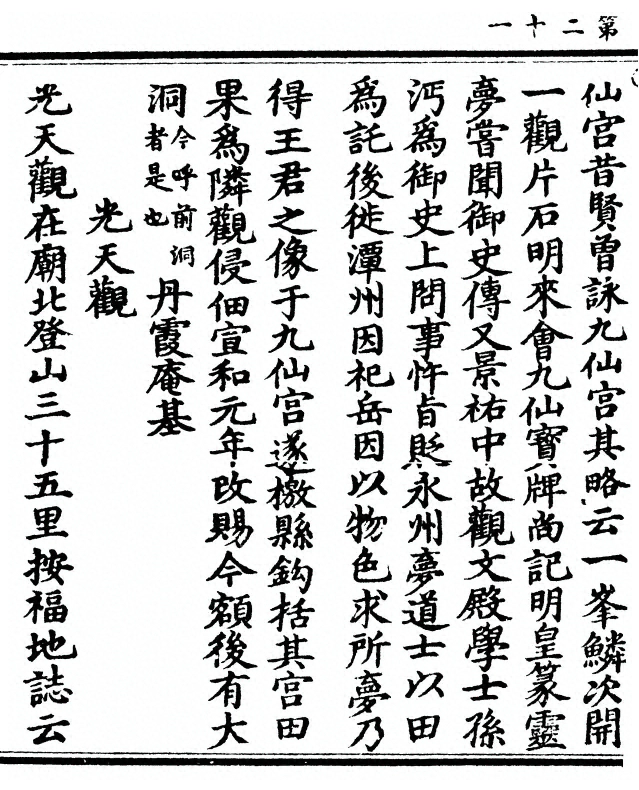 第二十一
仙宮昔賢曽詠九仙宮其略云一峯鱗次開
一觀片石明來會九仙寶牌尚記明皇篆靈
夢嘗聞御史傳又景祐中故觀文殿學士孫
沔為御史上問事忤旨貶永州夢道士以田
為託後徙潭州因祀岳因以物色求所夢乃
得王君之像于九仙宮遂檄縣鈎括其宮田
果為隣觀侵佃宣和元年改賜今額後有大
洞今呼前洞者是也丹霞庵基
光天觀
光天觀在廟北登山三十五里按福地誌云